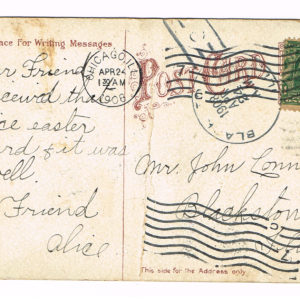 ace For Writing Messages
ar Friend
eceived the
ice easter
ard & it was
vell
Friend
Alice
CHICAGO, ILL.
APR 24
130 AM
1908
Post Card
BLA
Mr. John Conn
Blackstone
This side for the Address only